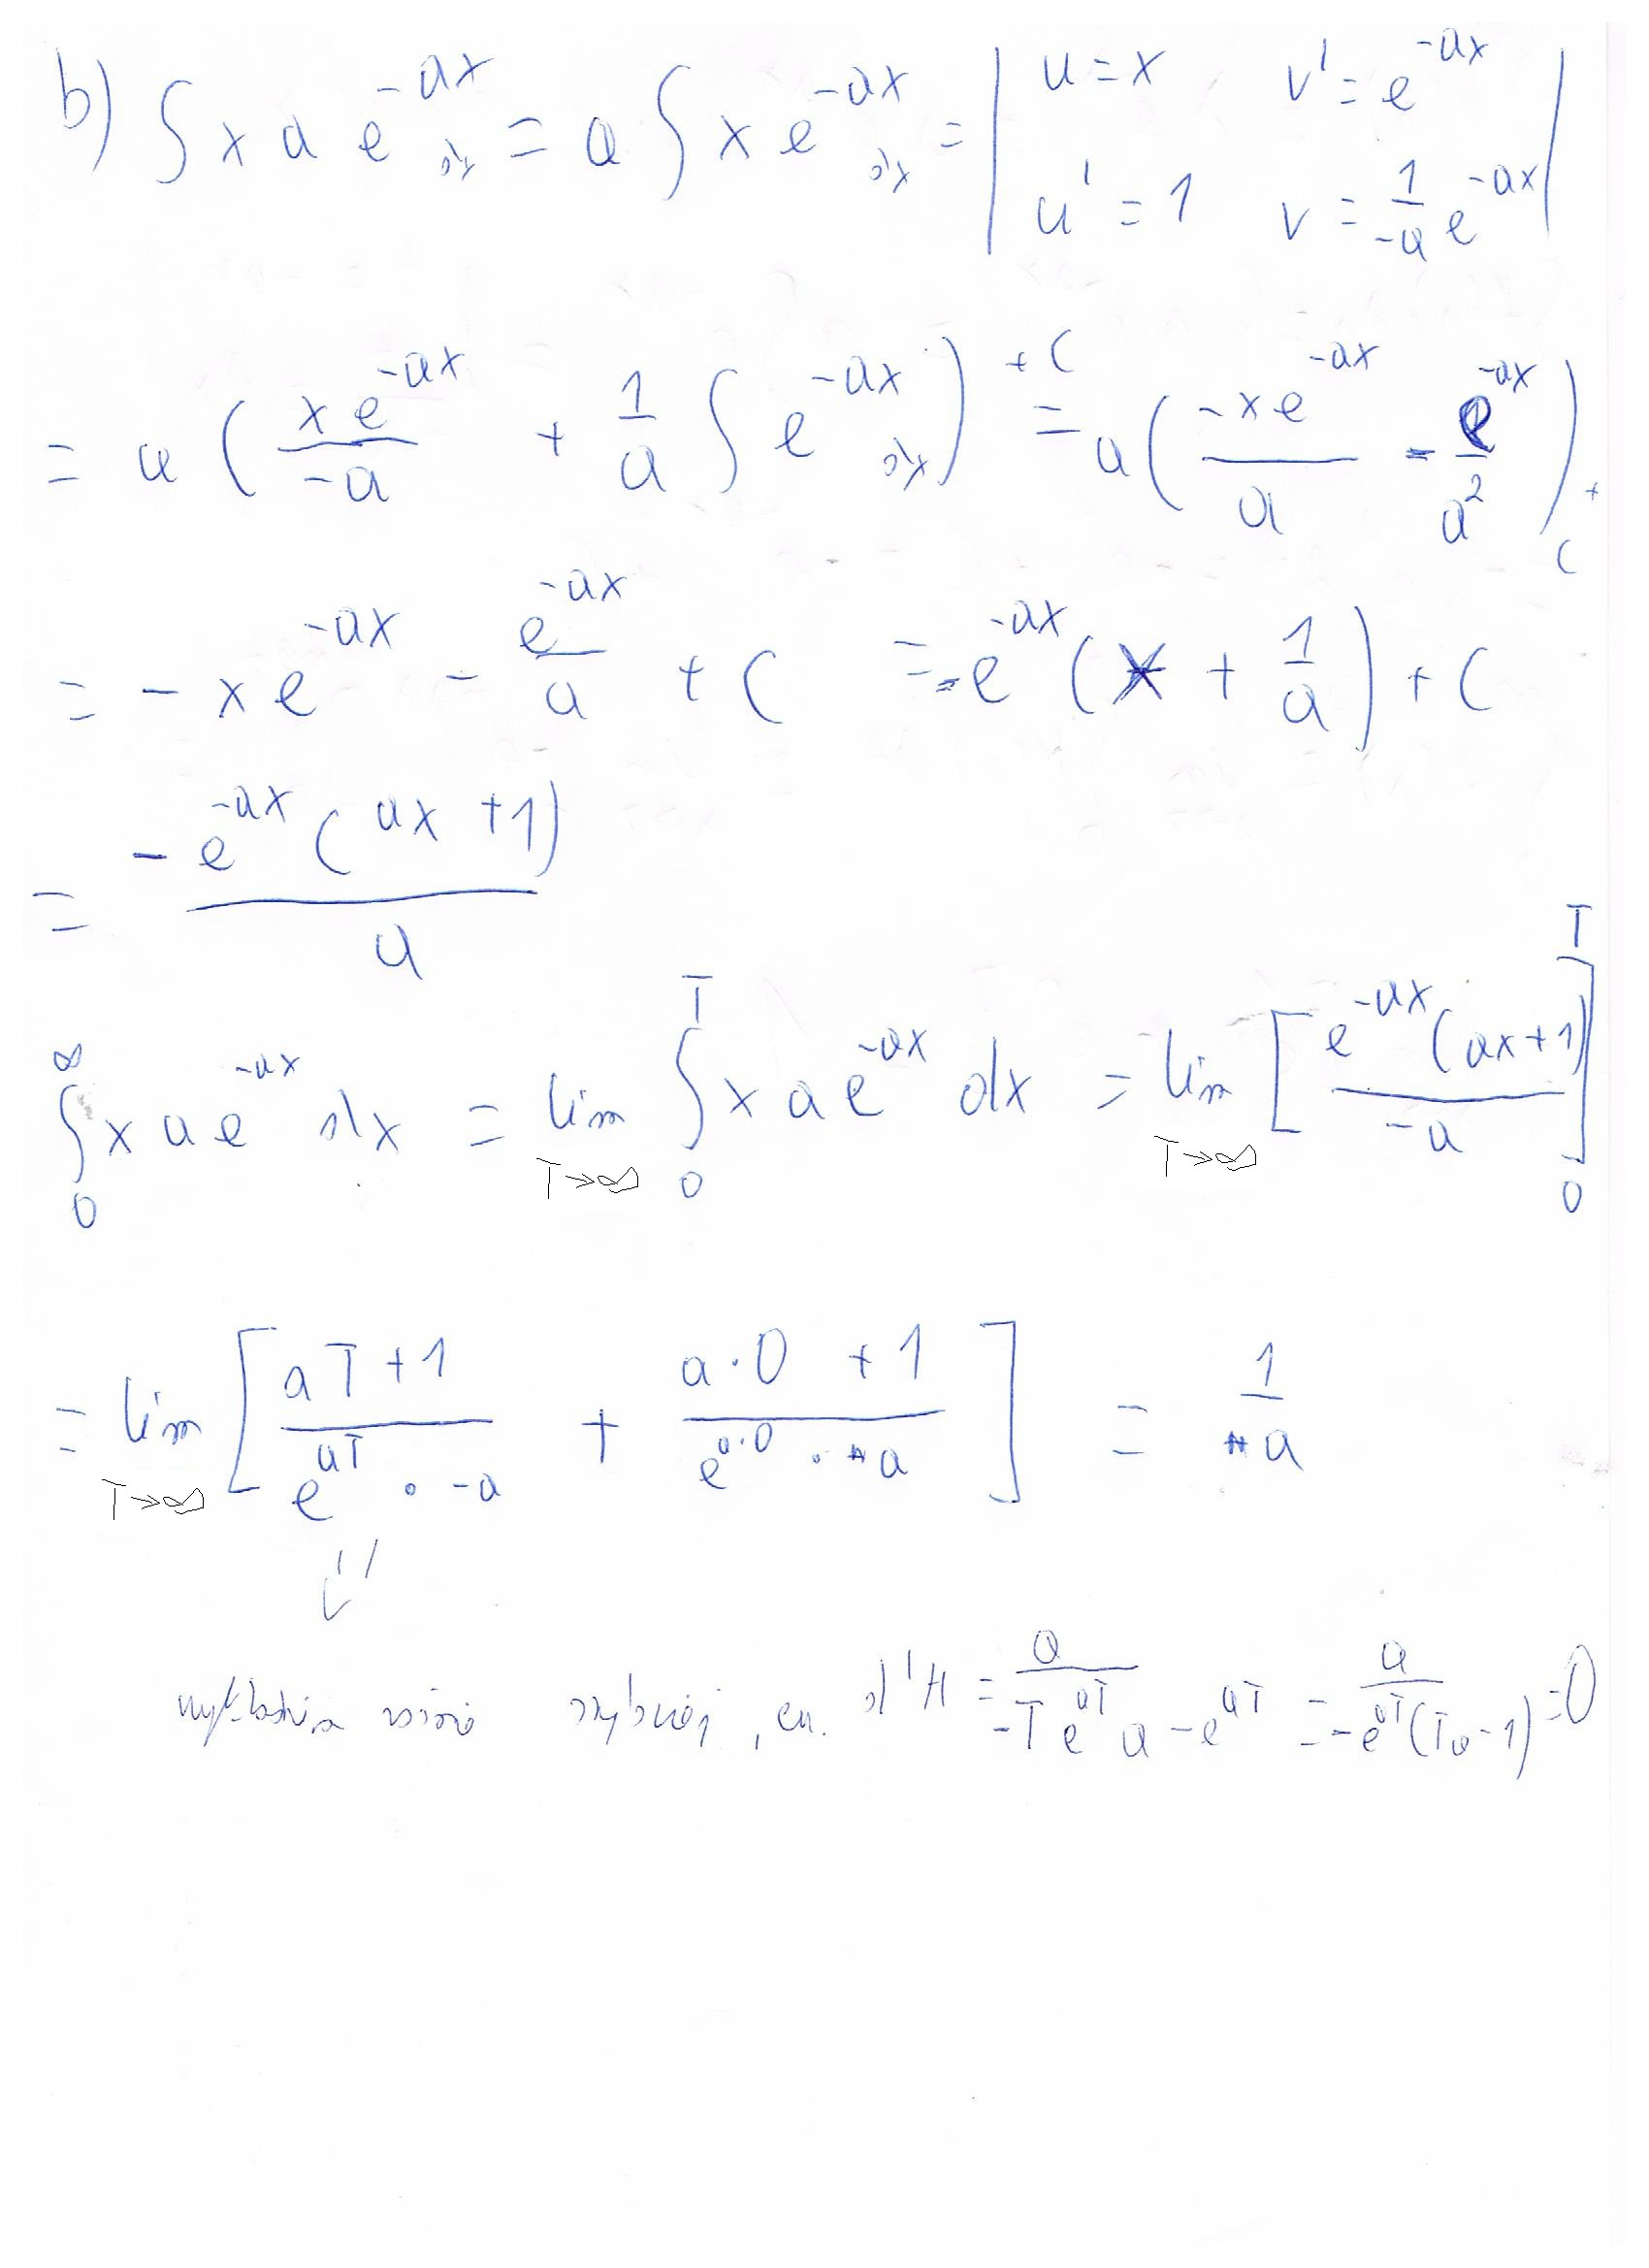 b) ∫ x a e^{-ax} dx = a ∫ x e^{-ax} dx = | u = x v' = e^{-ax} u' = 1 v = \frac{1}{-a} e^{-ax} |
= a ( \frac{x e^{-ax}}{-a} + \frac{1}{a} ∫ e^{-ax} dx ) + C = a ( \frac{-x e^{-ax}}{a} - \frac{e^{-ax}}{a^2} ) + C
= - x e^{-ax} - \frac{e^{-ax}}{a} + C = -e^{-ax} ( x + \frac{1}{a} ) + C
= \frac{- e^{-ax} ( ax + 1 )}{a}
∫_0^∞ x a e^{-ax} dx = lim_{T→∞} ∫_0^T x a e^{-ax} dx = lim_{T→∞} [ \frac{e^{-ax} (ax+1)}{-a} ]_0^T
= lim_{T→∞} [ \frac{aT+1}{e^{aT} · -a} + \frac{a·0 + 1}{e^{a·0} · a} ] = \frac{1}{a}
szybciej, d'H = \frac{a}{-T e^{aT} a - e^{aT}} = \frac{a}{-e^{aT}(Ta-1)} = 0